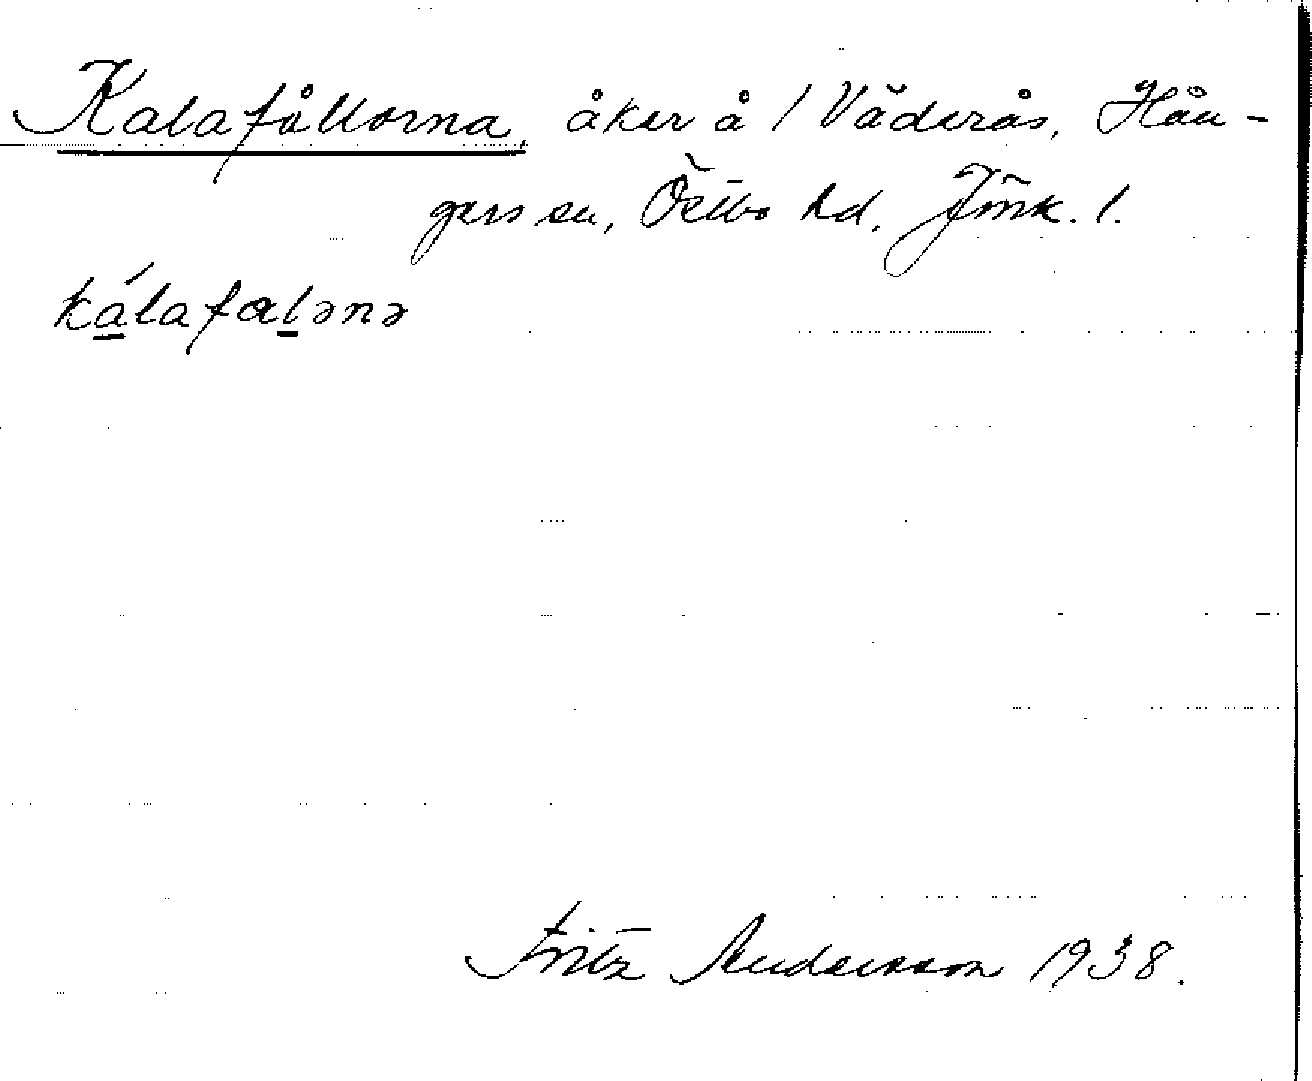 Kalafållorna, åker å 1 Väderås, Hån-
gers sn, Östbo hd. Jönk. l.
kálafalənə
Fritz Andersson 1938.